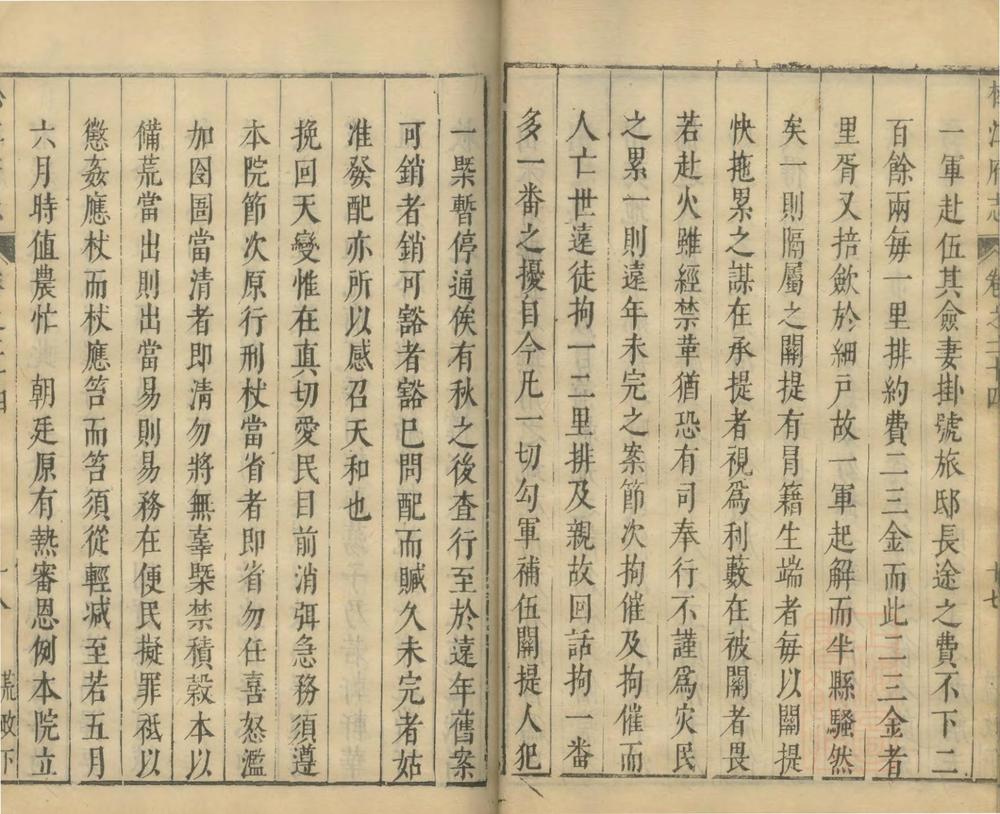 松江府志 卷之三十四
一軍赴伍其僉妻掛號旅邸長途之費不下二
百餘兩每一里排約費二三金而此二三金者
里胥又掊斂於細戶故一軍起解而半縣騷然
矣一則隔屬之關提有冐籍生端者每以關提
快拖累之謀在承提者視爲利藪在被關者畏
若赴火雖經禁革猶恐有司奉行不謹爲灾民
之累一則遠年未完之案節次拘催及拘催而
人亡世遠徒拘一二里排及親故回話拘一番
多一番之擾自今凡一切勾軍補伍關提人犯
一槩暫停通俟有秋之後查行至於遠年舊案
可銷者銷可豁者豁巳問配而贓久未完者姑
准發配亦所以感召天和也
挽回天變惟在真切愛民目前消弭急務須遵
本院節次原行刑杖當省者即省勿任喜怒濫
加囹圄當清者即清勿將無辜槩禁積穀本以
備荒當出則出當易則易務在便民擬罪祗以
懲姦應杖而杖應笞而笞須從輕減至若五月
六月時值農忙 朝廷原有熱審恩例本院立
十八 荒政下